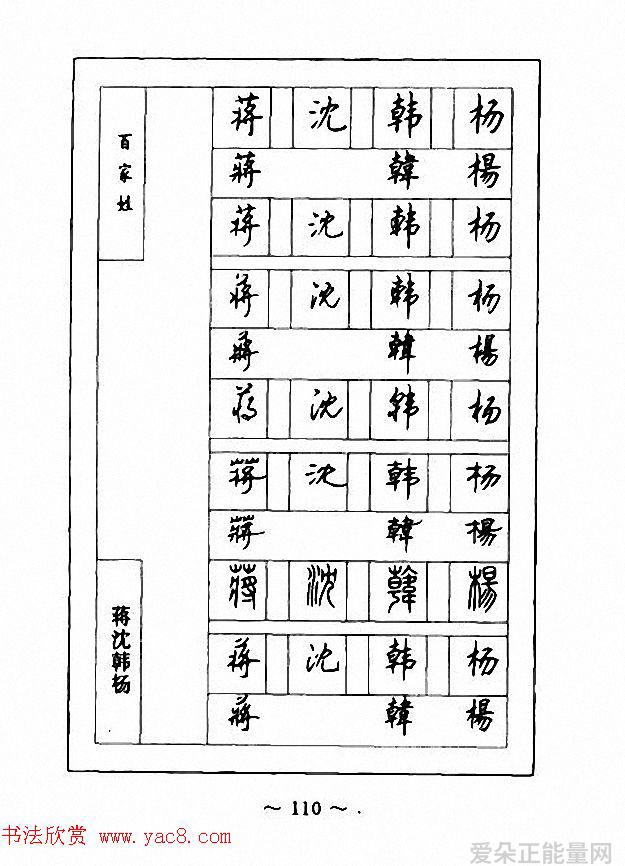 百家姓
蒋 沈 韩 杨
蔣 韓 楊
蒋 沈 韩 杨
蒋 沈 韩 杨
蔣 韓 楊
蒋 沈 韩 杨
蒋 沈 韩 杨
蔣 韓 楊
蔣 沈 韓 楊
蒋 沈 韩 杨
蔣 韓 楊
蒋沈韩杨
~ 110 ~
书法欣赏 www.yac8.com
爱朵正能量网